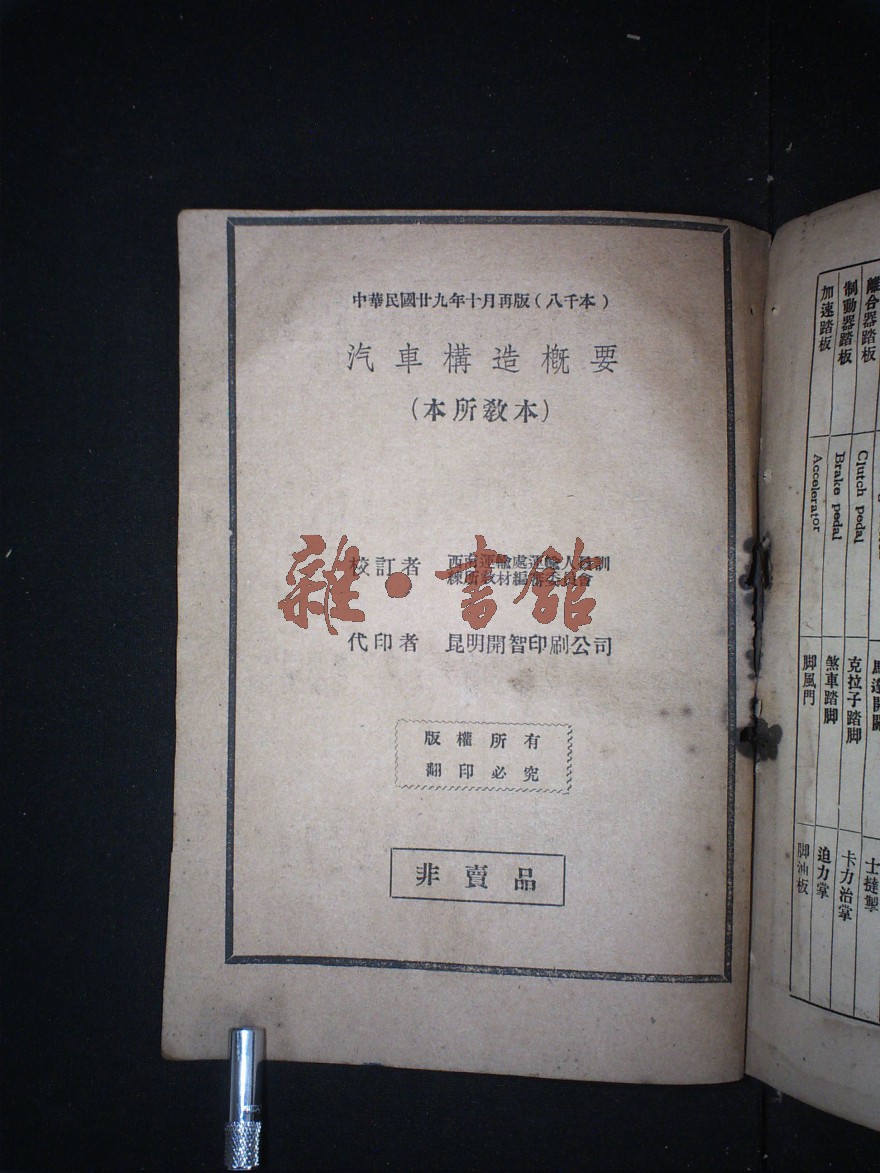 中華民國廿九年十月再版(八千本)
汽車構造概要
(本所教本)
校訂者 西南運輸處運輸人員訓
練所教材編審委員會
代印者 昆明開智印刷公司
版權所有
翻印必究
非賣品
雜·書館
離合器踏板 Clutch pedal 克拉子踏脚 卡力治掌
制動器踏板 Brake pedal 煞車踏脚 迫力掌
加速踏板 Accelerator 脚風門 脚油板